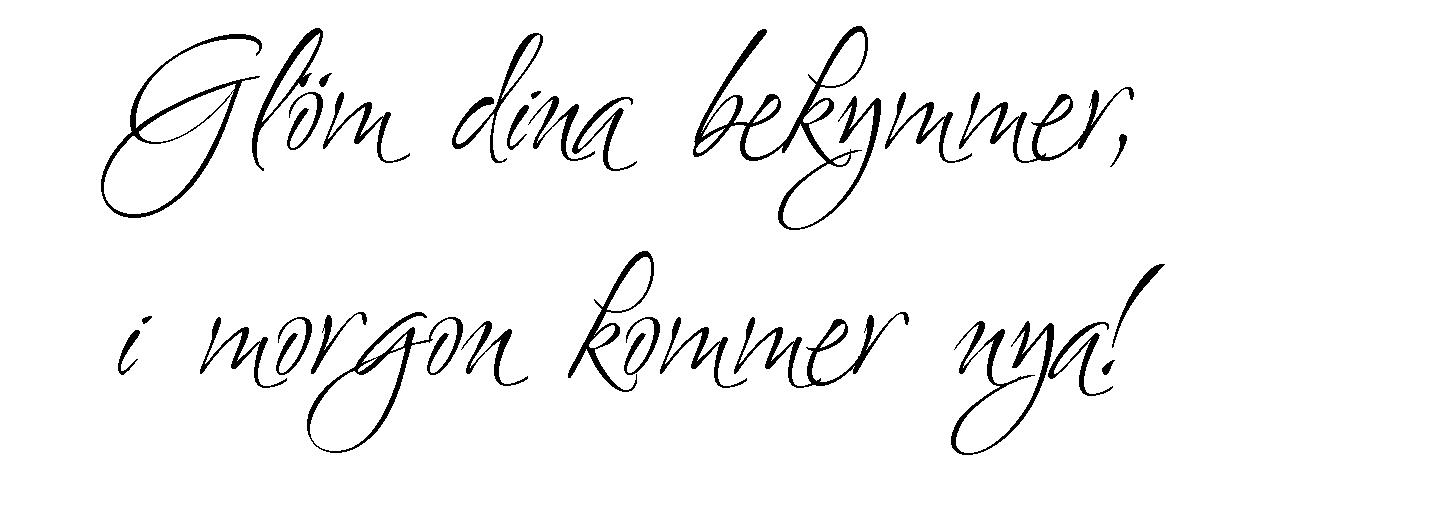 Glöm dina bekymmer,
i morgon kommer nya!